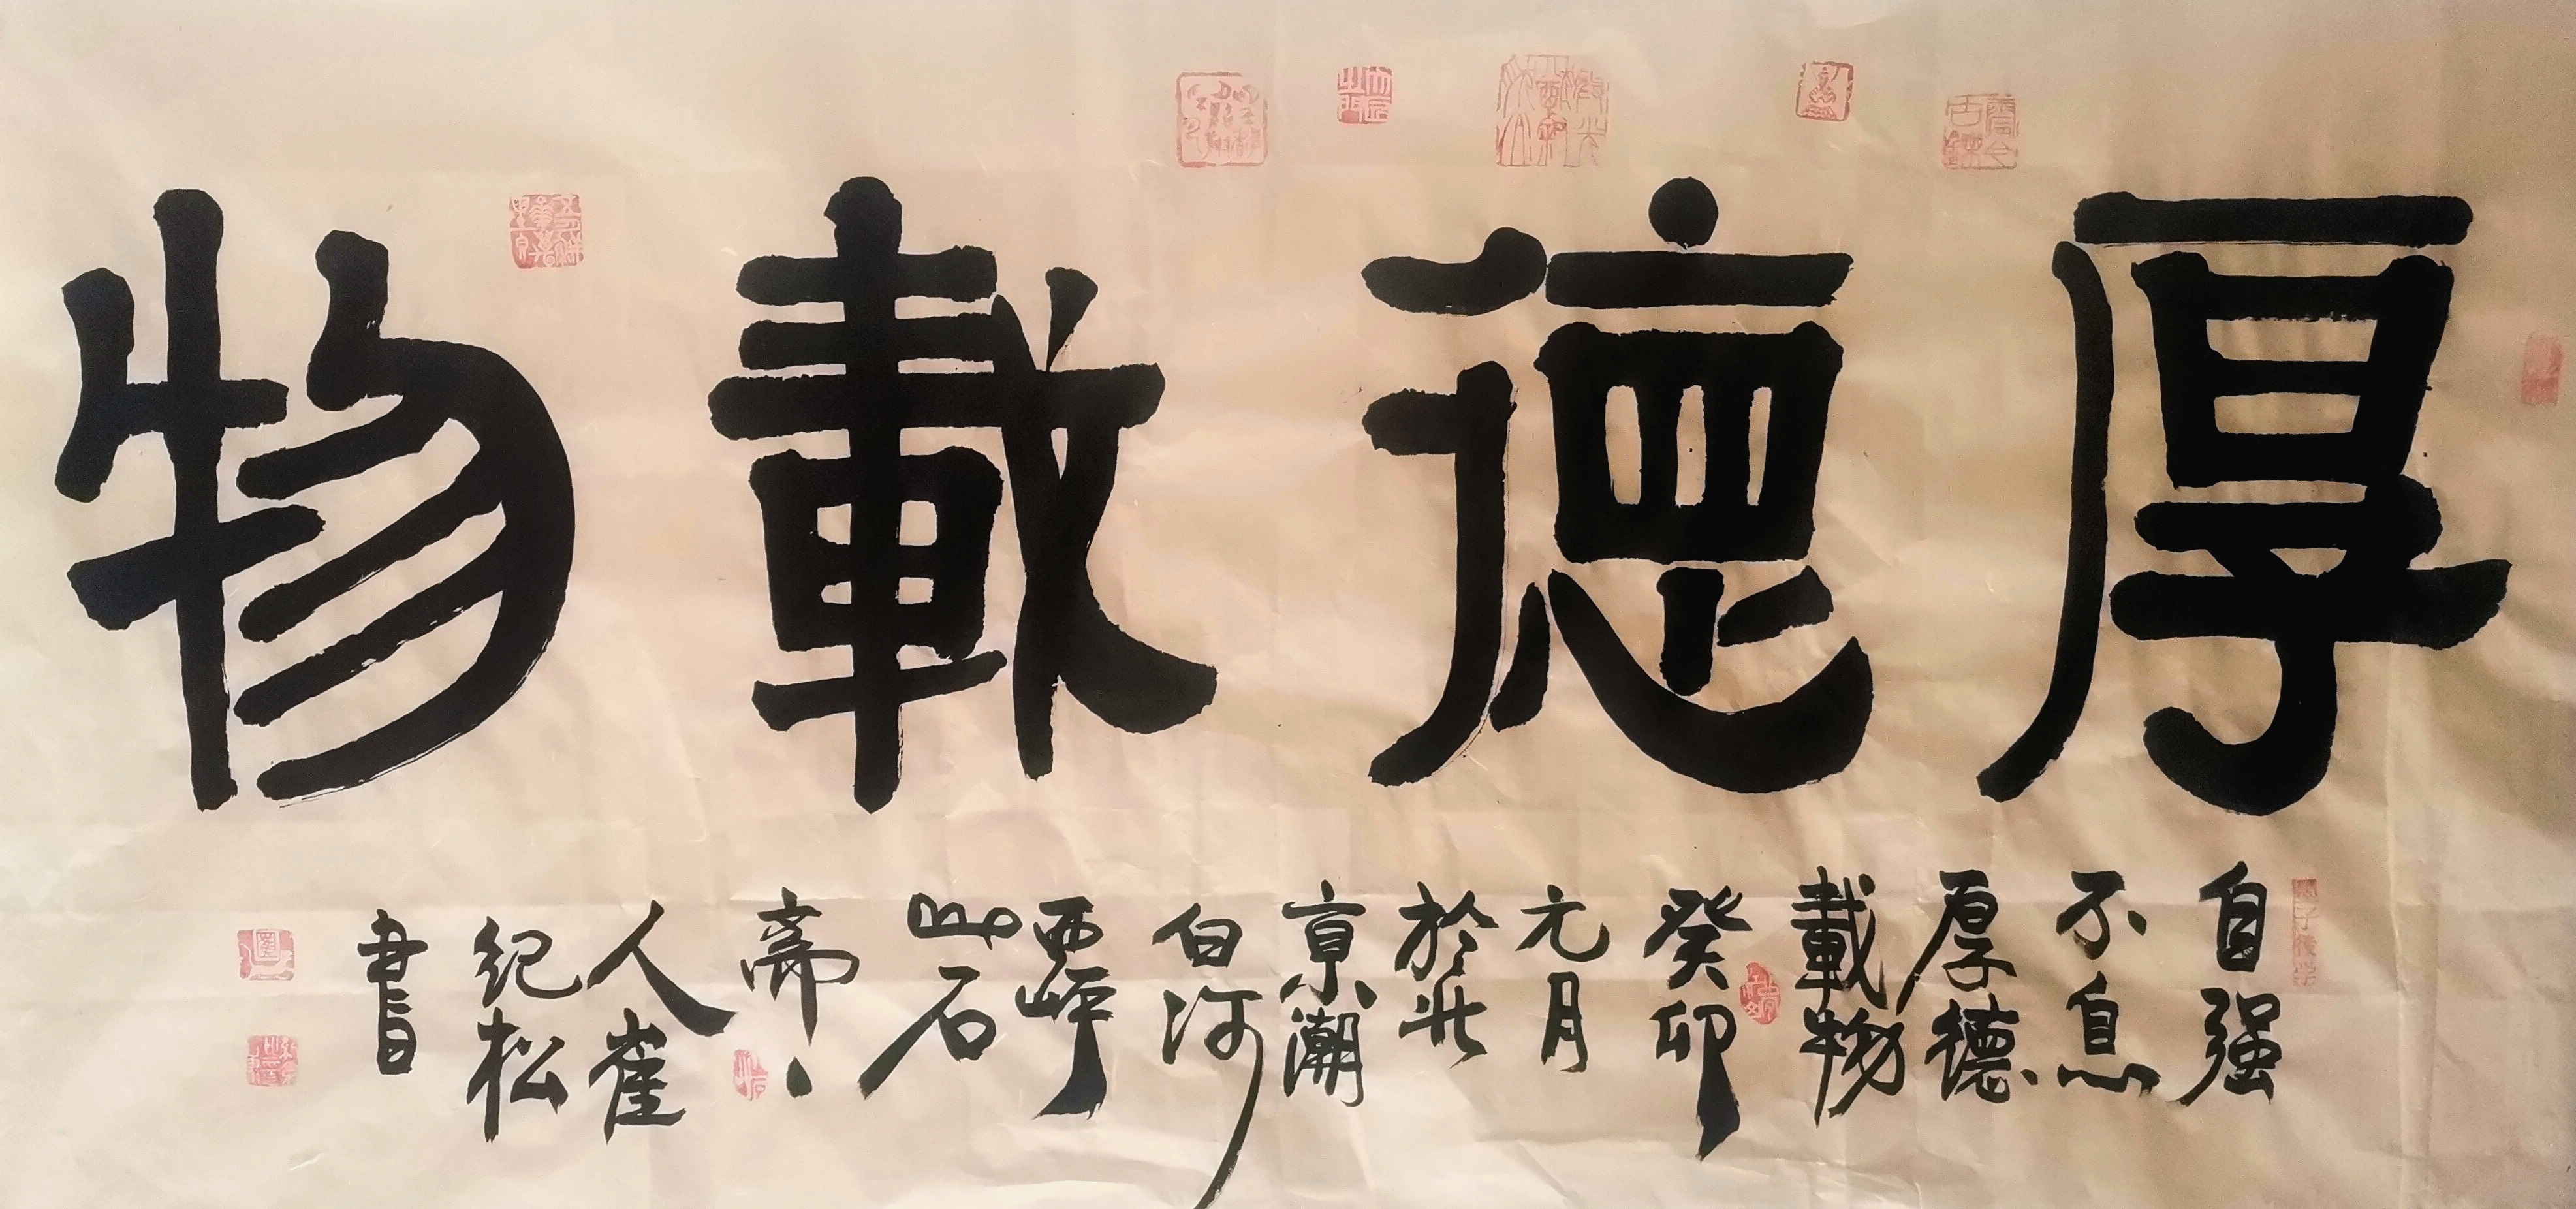 厚德載物
自强
不息
厚德
載物
癸卯
元月
於北
京潮
白河
西岸
山石
斋人崔
紀松
書